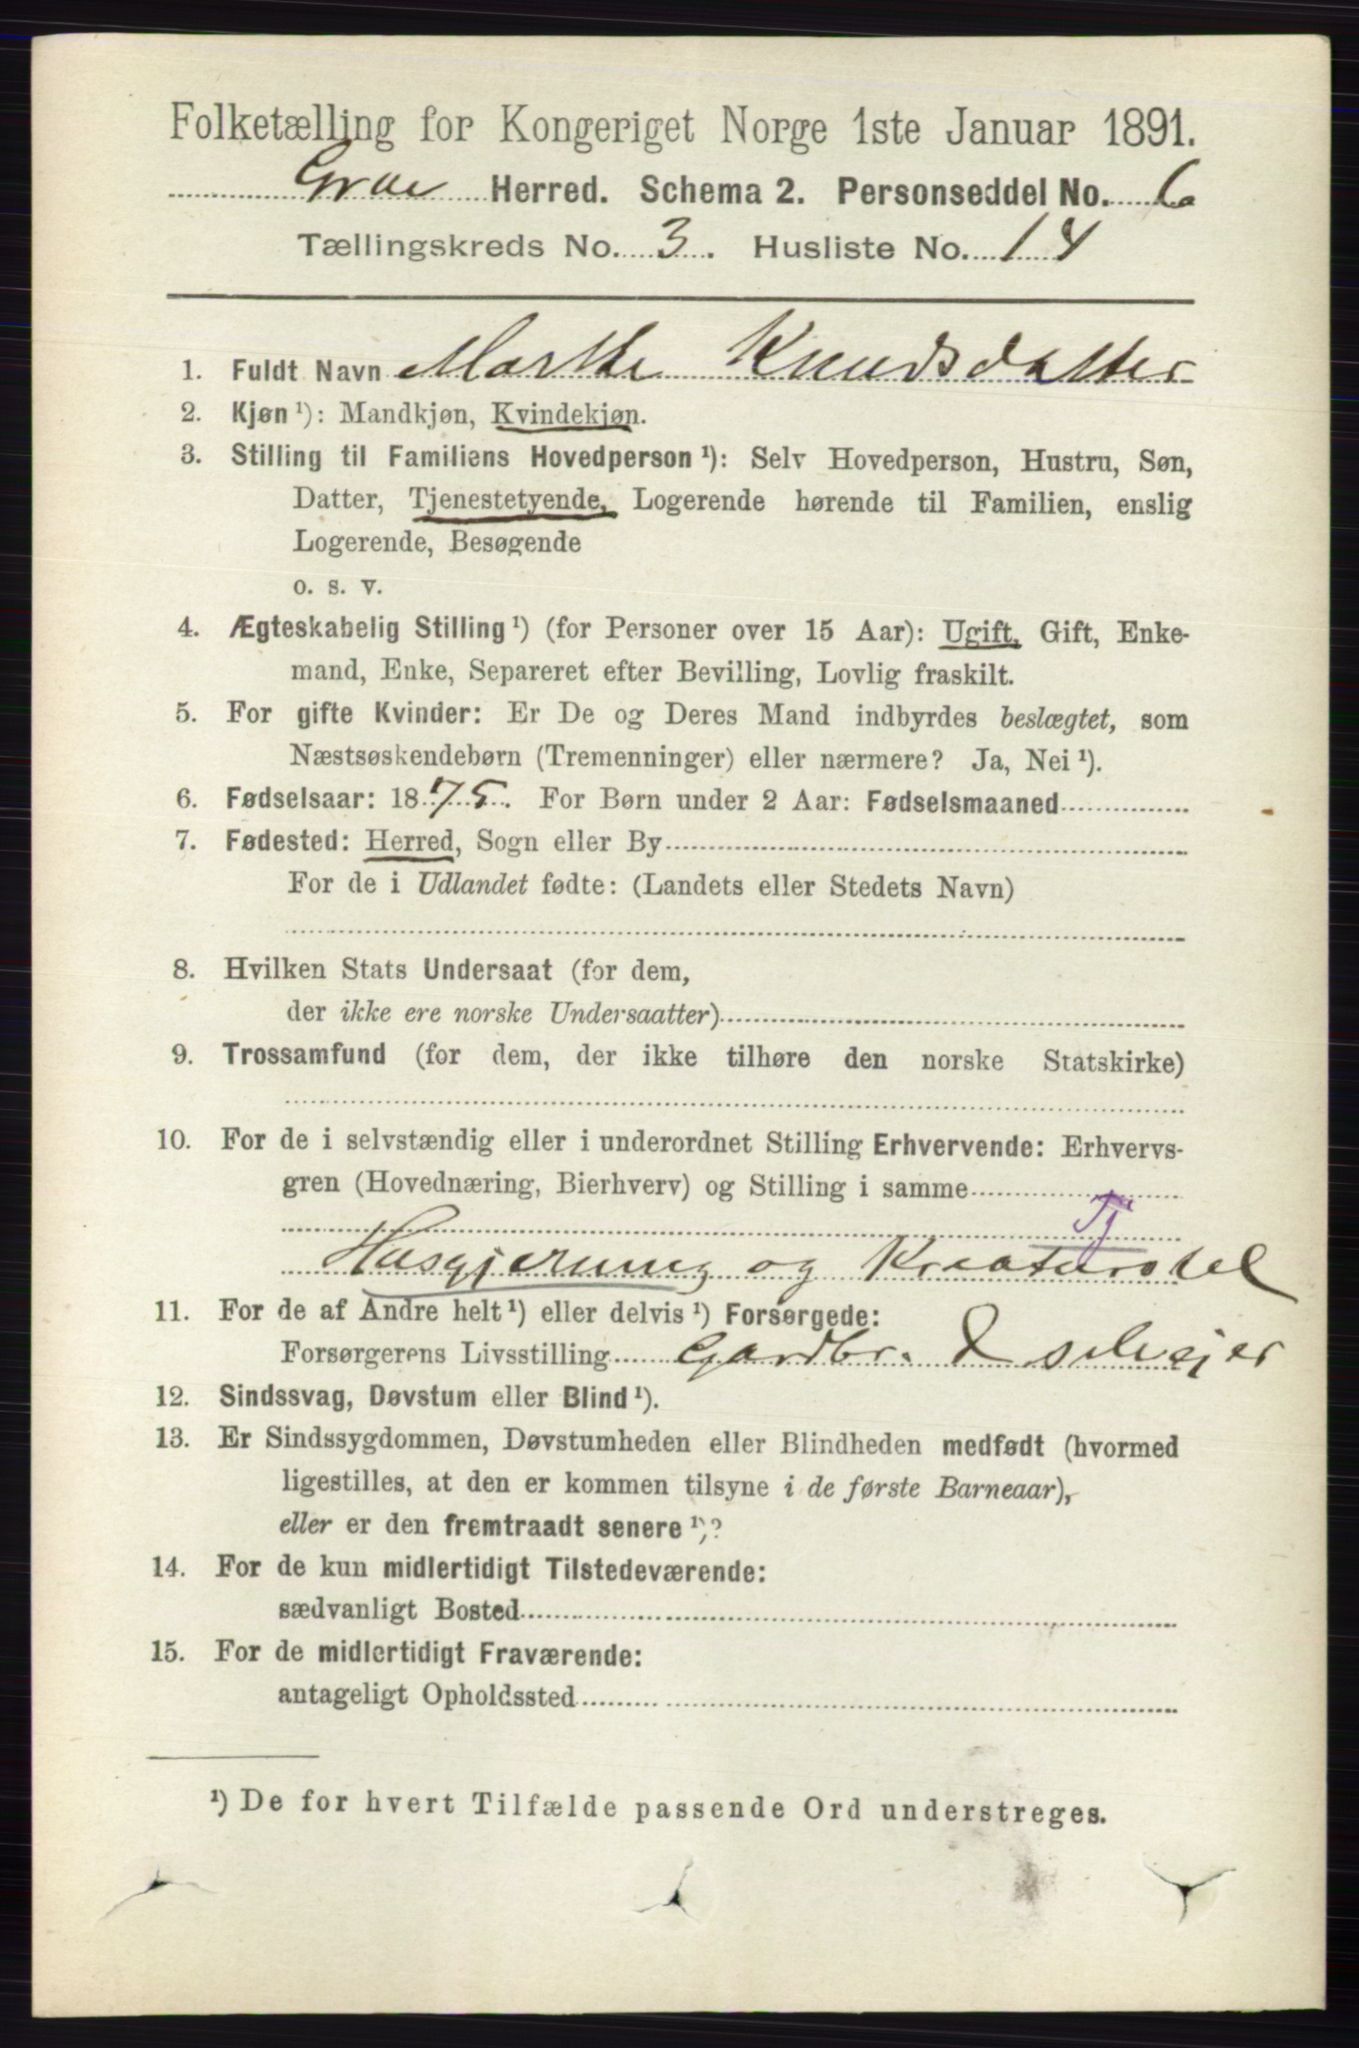 Folketælling for Kongeriget Norge 1ste Januar 1891.
Grue Herred. Schema 2. Personseddel No. 6
Tællingskreds No. 3. Husliste No. 14
1. Fuldt Navn Marthe Knudsdatter
2. Kjøn ¹): Mandkjøn, Kvindekjøn.
3. Stilling til Familiens Hovedperson ¹): Selv Hovedperson, Hustru, Søn,
Datter, Tjenestetyende, Logerende hørende til Familien, enslig
Logerende, Besøgende
o. s. v.
4. Ægteskabelig Stilling ¹) (for Personer over 15 Aar): Ugift, Gift, Enke-
mand, Enke, Separeret efter Bevilling, Lovlig fraskilt.
5. For gifte Kvinder: Er De og Deres Mand indbyrdes beslægtet, som
Næstsøskendebørn (Tremenninger) eller nærmere? Ja, Nei ¹).
6. Fødselsaar: 1875. For Børn under 2 Aar: Fødselsmaaned
7. Fødested: Herred, Sogn eller By
For de i Udlandet fødte: (Landets eller Stedets Navn)
8. Hvilken Stats Undersaat (for dem,
der ikke ere norske Undersaatter)
9. Trossamfund (for dem, der ikke tilhøre den norske Statskirke)
10. For de i selvstændig eller i underordnet Stilling Erhvervende: Erhvervs-
gren (Hovednæring, Bierhverv) og Stilling i samme
Tj
Husgjerning og Kreaturstel
11. For de af Andre helt ¹) eller delvis ¹) Forsørgede:
Forsørgerens Livsstilling Gardbr. & selvejer
12. Sindssvag, Døvstum eller Blind ¹).
13. Er Sindssygdommen, Døvstumheden eller Blindheden medfødt (hvormed
ligestilles, at den er kommen tilsyne i de første Barneaar),
eller er den fremtraadt senere ¹)?
14. For de kun midlertidigt Tilstedeværende:
sædvanligt Bosted
15. For de midlertidigt Fraværende:
antageligt Opholdssted
¹) De for hvert Tilfælde passende Ord understreges.